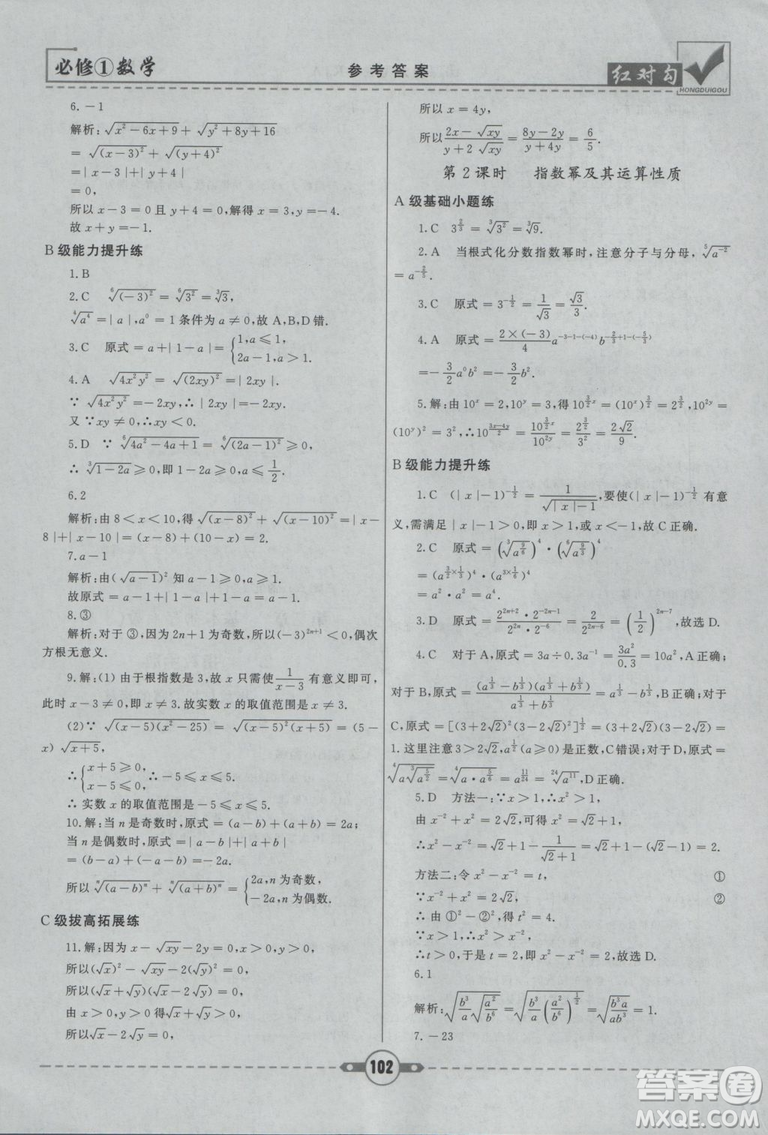 必修①数学
参考答案
红对勾
HONGDUIGOU
6.-1
解析:√(x²-6x+9)+√(y²+8y+16)
=√((x-3)²)+√((y+4)²)
=|x-3|+|y+4|
=0.
所以x-3=0且y+4=0,解得x=3,y=-4.
故x+y=-1.
B级能力提升练
1.B
2.C ⁶√((-3)²)=⁶√(3²)=³√3,
⁴√(a⁴)=|a|,a⁰=1条件为a≠0,故A,B,D错.
3.C 原式=a+|1-a|={1,a≤1, 2a-1,a>1.
4.A √(4x²y²)=√((2xy)²)=|2xy|.
∵√(4x²y²)=-2xy,∴xy≤0.
又∵xy≠0,∴xy<0.
5.D ∵⁶√(4a²-4a+1)=⁶√((2a-1)²)≥0,
∴³√(1-2a)≥0,即1-2a≥0,∴a≤1/2.
6.2
解析:由8<x<10,得√((x-8)²)+√((x-10)²)=|x-
8|+|x-10|=(x-8)+(10-x)=2.
7.a-1
解析:由(√(a-1))²知a-1≥0,a≥1.
故原式=a-1+|1-a|+1-a=a-1.
8.③
解析:对于③,因为2n+1为奇数,所以(-3)²ⁿ⁺¹<0,偶次
方根无意义.
9.解:(1)由于根指数是3,故x只需使1/(x-3)有意义即可,
此时x-3≠0,即x≠3.故实数x的取值范围是x≠3.
(2)∵√((x-5)(x²-25))=√((x-5)²(x+5))=(5-
x)√(x+5),
∴{x+5≥0, x-5≤0,∴-5≤x≤5.
∴实数x的取值范围是-5≤x≤5.
10.解:当n是奇数时,原式=(a-b)+(a+b)=2a;
当n是偶数时,原式=|a-b|+|a+b|
=(b-a)+(-a-b)=-2a.
所以ⁿ√((a-b)ⁿ)+ⁿ√((a+b)ⁿ)={2a,n为奇数, -2a,n为偶数.
C级拔高拓展练
11.解:因为x-√(xy)-2y=0,x>0,y>0,
所以(√x)²-√(xy)-2(√y)²=0,
所以(√x+√y)(√x-2√y)=0,
由x>0,y>0得√x+√y>0,
所以√x-2√y=0,
所以x=4y,
所以(2x-√(xy))/(y+2√(xy))=(8y-2y)/(y+4y)=6/5.
第2课时 指数幂及其运算性质
A级基础小题练
1.C 3^(2/3)=³√(3²)=³√9.
2.A 当根式化分数指数幂时,注意分子与分母,⁵√(a⁻²)
=a^(-2/5).
3.C 原式=3^(-1/2)=1/√3=√3/3.
4.A 原式=(2×(-3))/4 a^(-3-1-(-4))b^(-2/3+1+5/3)
=-3/2a⁰b²=-3/2b².
5.解:由10ˣ=2,10ʸ=3,得10^(3/2x)=(10ˣ)^(3/2)=2^(3/2),10²ʸ=
(10ʸ)²=3²,∴10^((3x-4y)/2)=10^(3/2x)/10^(2y)=2^(3/2)/3²=2√2/9.
B级能力提升练
1.C (|x|-1)^(-1/2)=1/√(|x|-1),要使(|x|-1)^(-1/2)有意
义,需满足|x|-1>0,即x>1或x<-1,故C正确.
2.C 原式=(³√(a^(9/6)))⁴·(⁶√(a^(9/3)))⁴
=(a^(3/2×1/3))⁴·(a^(3×1/6))⁴
=a²·a²=a⁴.
3.D 原式=(2²ⁿ⁺²·2⁻²ⁿ⁻¹)/(2²ⁿ·2⁻⁶)=2/2²ⁿ⁻⁶=(1/2)²ⁿ⁻⁷,故选D.
4.C 对于A,原式=3a÷0.3a⁻¹=3a²/0.3=10a²,A正确;
对于B,原式=(a^(1/3)-b^(1/3))(a^(1/3)+b^(1/3))/(a^(1/3)+b^(1/3))=a^(1/3)-b^(1/3),B正确;对于
C,原式=[(3+2√2)²(3-2√2)²]^(1/2)=(3+2√2)(3-2√2)=
1.这里注意3>2√2,a^(1/2)(a≥0)是正数,C错误;对于D,原式=
⁴√(a³√(a^(5/2)))=⁴√(a·a^(5/6))=a^(11/24)=²⁴√(a¹¹),D正确.
5.D 方法一:∵x>1,∴x²>1.
由x⁻²+x²=2√2,可得x²=√2+1,
∴x²-x⁻²=√2+1-1/(√2+1)=√2+1-(√2-1)=2.
方法二:令x²-x⁻²=t, ①
∵x⁻²+x²=2√2, ②
∴由①²-②²,得t²=4.
∵x>1,∴x²>x⁻²,
∴t>0,于是t=2,即x²-x⁻²=2,故选D.
6.1
解析:√(b³/a √(a²/b⁶))=√(b³/a (a²/b⁶)^(1/2))=√(b³a/(ab³))=1.
7.-23
102
答案圈
MXQE.COM